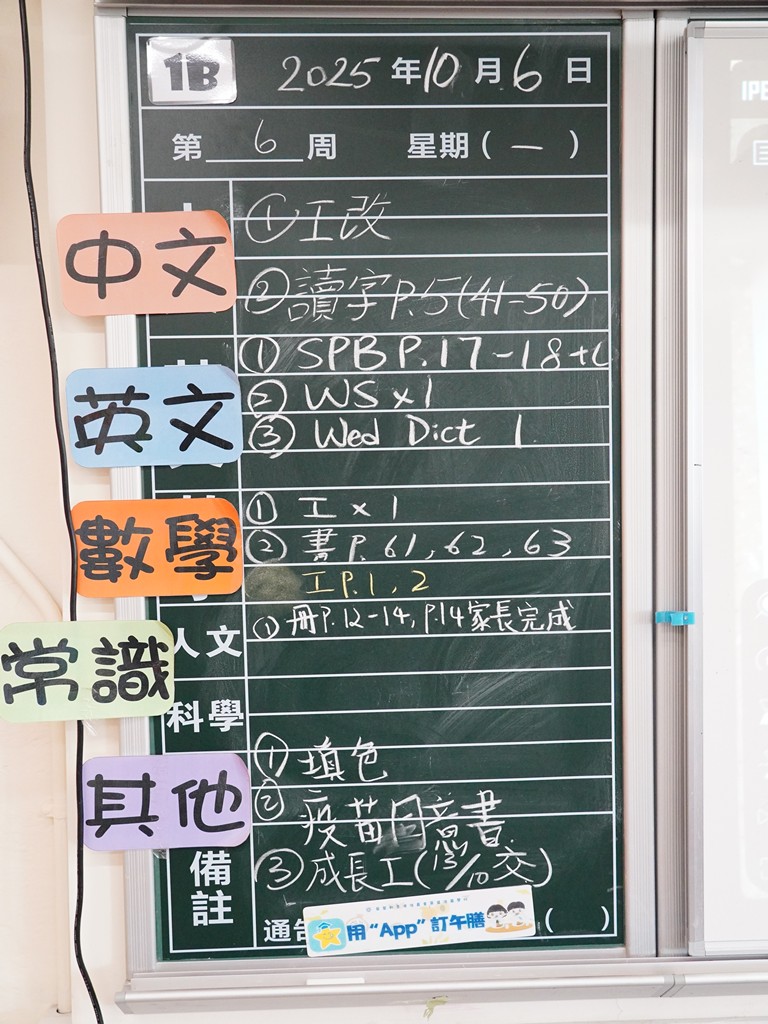 1B 2025年10月6日
第6周 星期(一)
中文
①工改
②讀字P.5(41-50)
英文
① SPB P.17-18+c
② WS x 1
③ Wed Dict 1
數學
① 工 x 1
② 書 P.61, 62, 63
工P.1, 2
常識
人文
① 冊P.12-14, P.14家長完成
科學
其他
① 填色
② 疫苗同意書
備註
③ 成長工(13/10交)
通告
用“App”訂午膳
( )